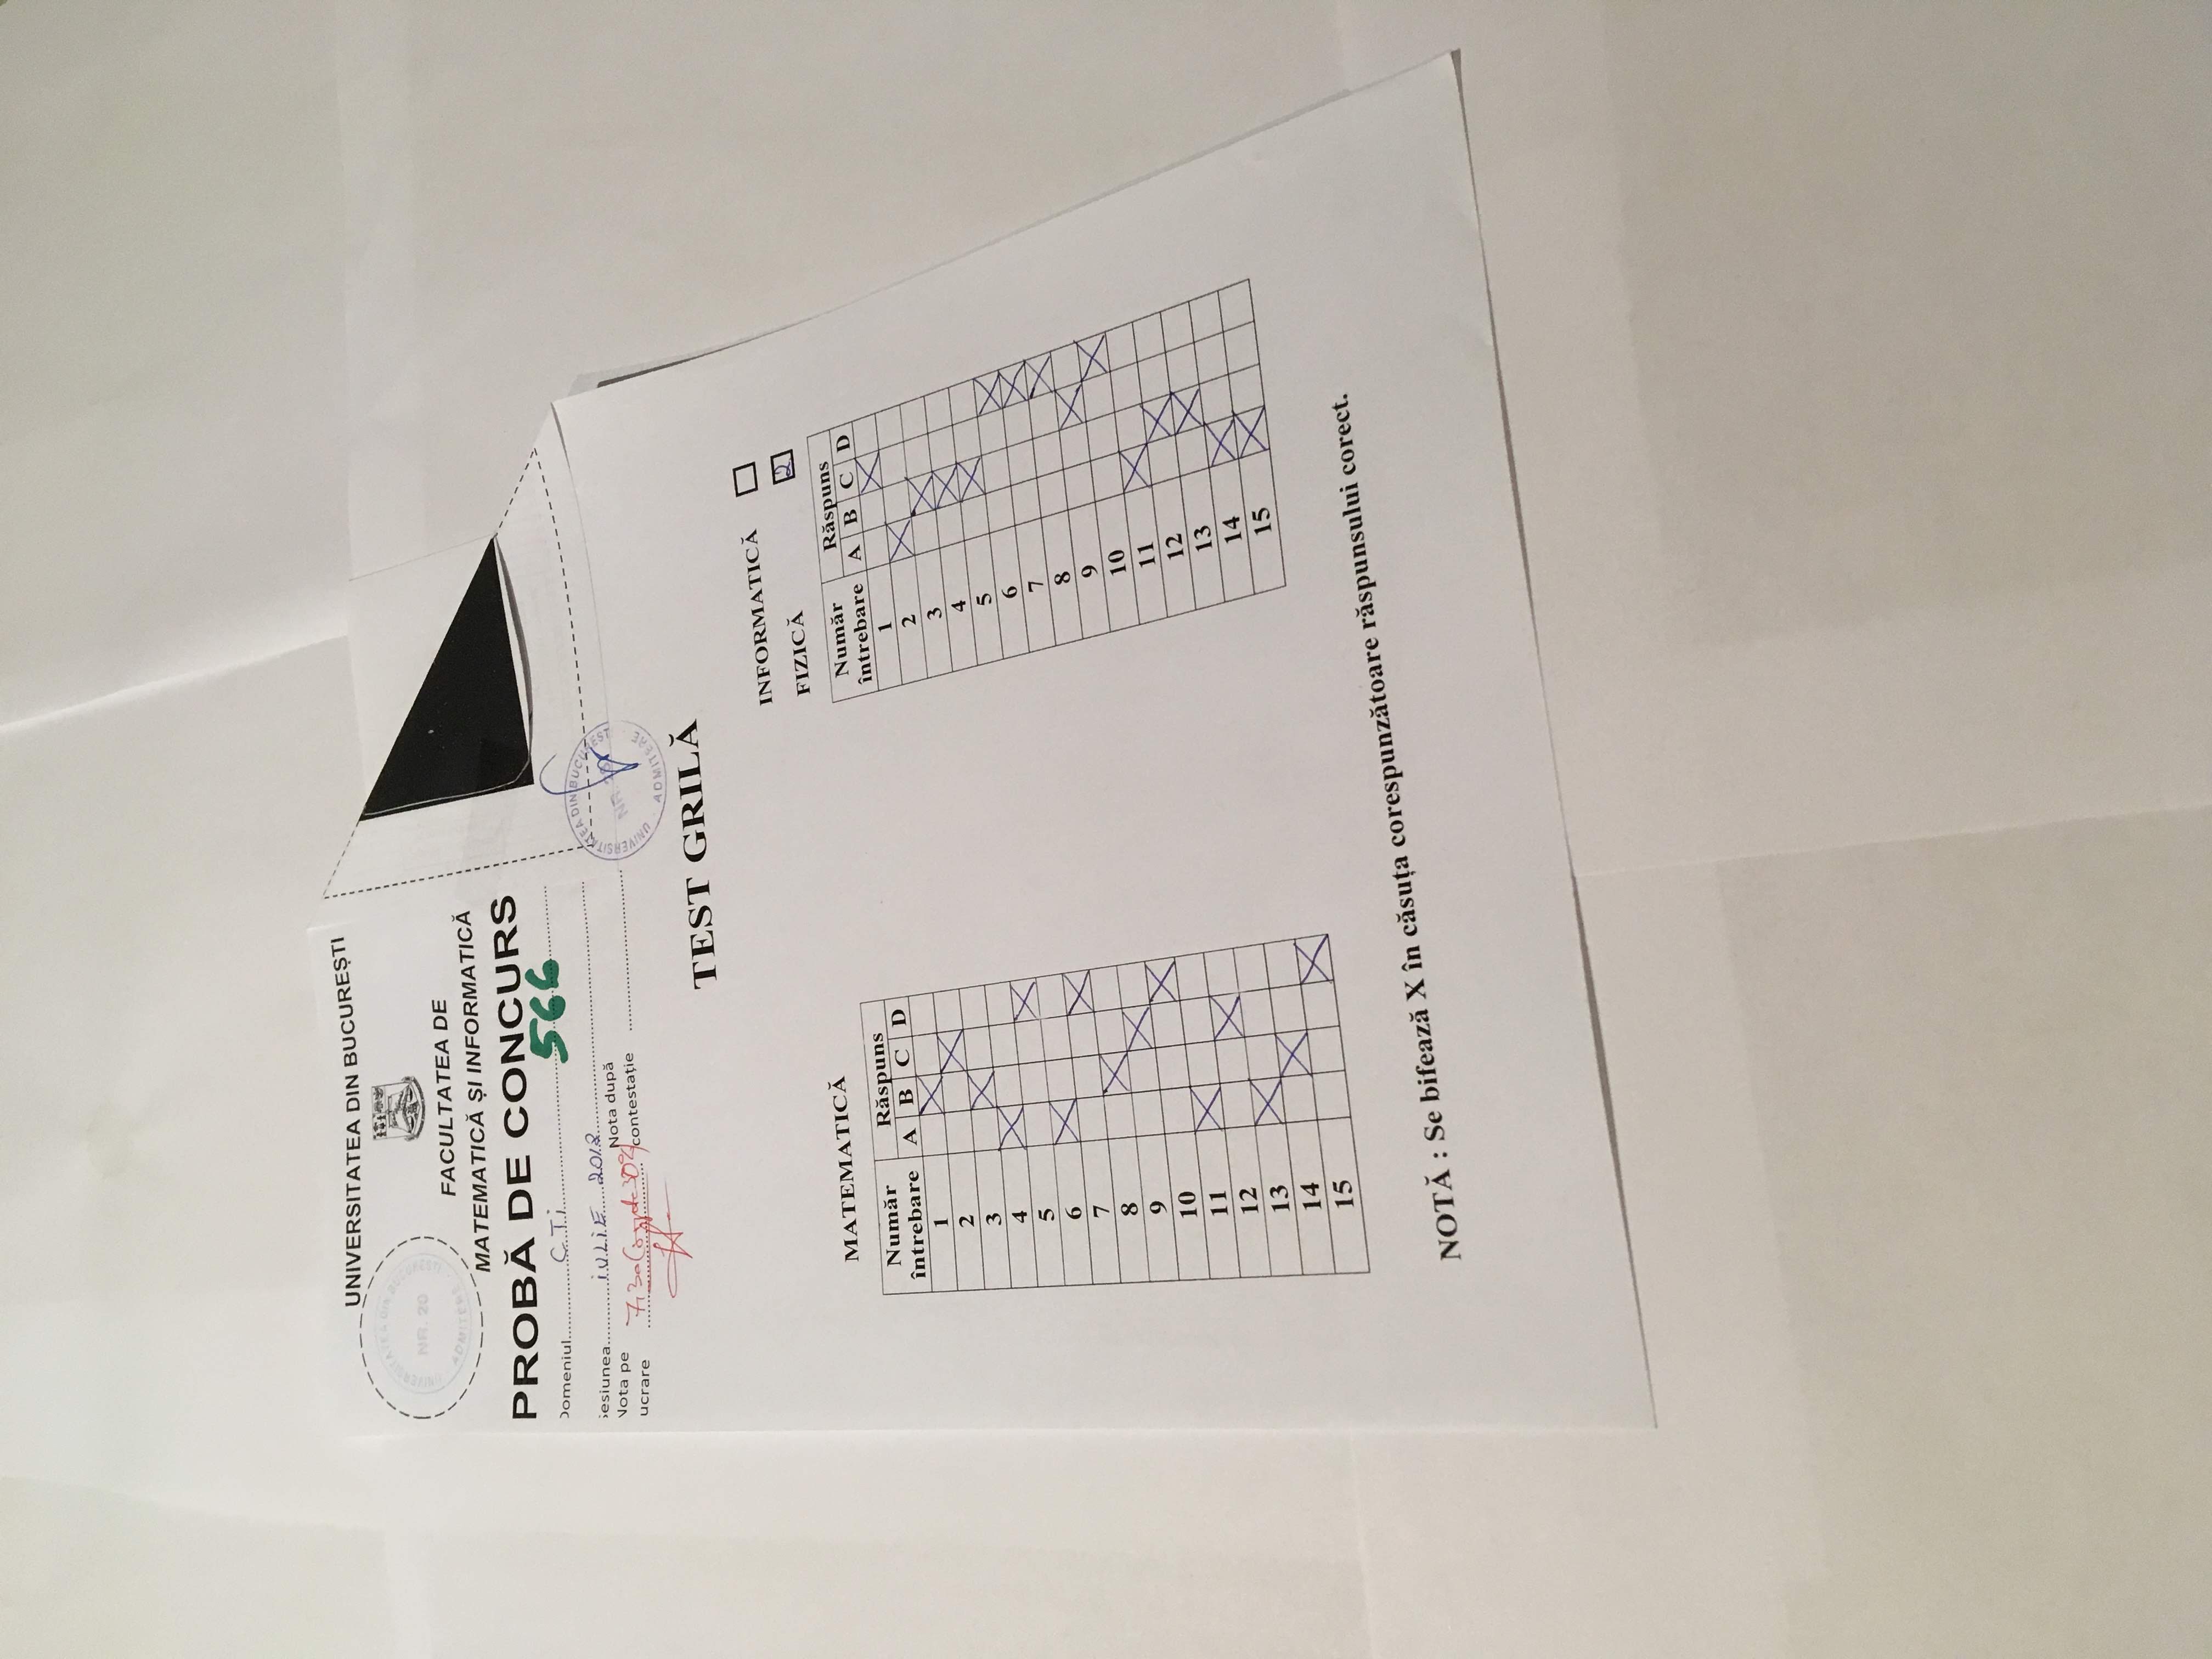 UNIVERSITATEA DIN BUCUREȘTI
UNIVERSITATEA DIN BUCUREȘTI
NR. 20
ADMITERE
FACULTATEA DE
MATEMATICĂ ȘI INFORMATICĂ
PROBĂ DE CONCURS
Domeniul CTi 566
Sesiunea iULiE 2018
Nota pe
lucrare 7,30
Nota după
contestație
UNIVERSITATEA DIN BUCUREȘTI
NR. 20
ADMITERE
TEST GRILĂ
INFORMATICĂ
FIZICĂ 2
MATEMATICĂ
Număr întrebare Răspuns
A B C D
1 X
2 X
3 X
4 X
5 X
6 X
7 X
8 X
9 X
10 X
11 X
12 X
13 X
14 X
15 X
Număr întrebare Răspuns
A B C D
1 X
2 X
3 X
4 X
5 X
6 X
7 X
8 X
9 X
10 X
11 X
12 X
13 X
14 X
15 X
NOTĂ : Se bifează X în căsuța corespunzătoare răspunsului corect.